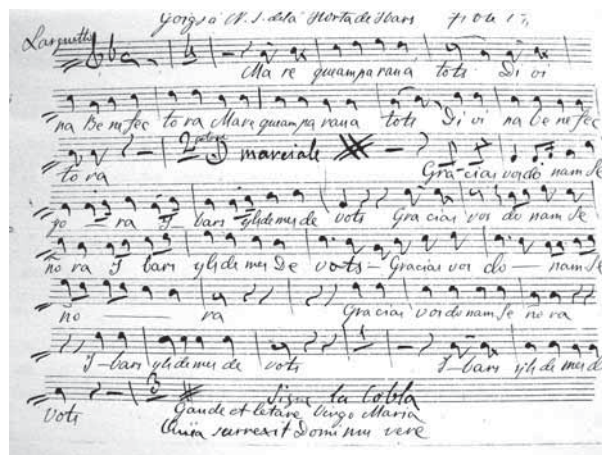 Gorigs à N. S. dela Horta de Ibars
Larguetto
Ma re queampa rana tots Di vi
na Be ne fec to ra Mare queampa rana tots Di vi na be ne fec
to ra 2 marciale Gra cias vos do nam Se
ño ra Y bars yls de mes de vots Gra cias vos do nam Se
ño ra Y bars yls de mes De vots Gracias vos do nam Se
ño ra Gracias vos do nam Se ño ra
Y bars yls de mes de vots Y bars yls de mes de
vots 3 Sigue la Cobla
Gaude et letare Virgo Maria
Quiia surrexit Dominus vere